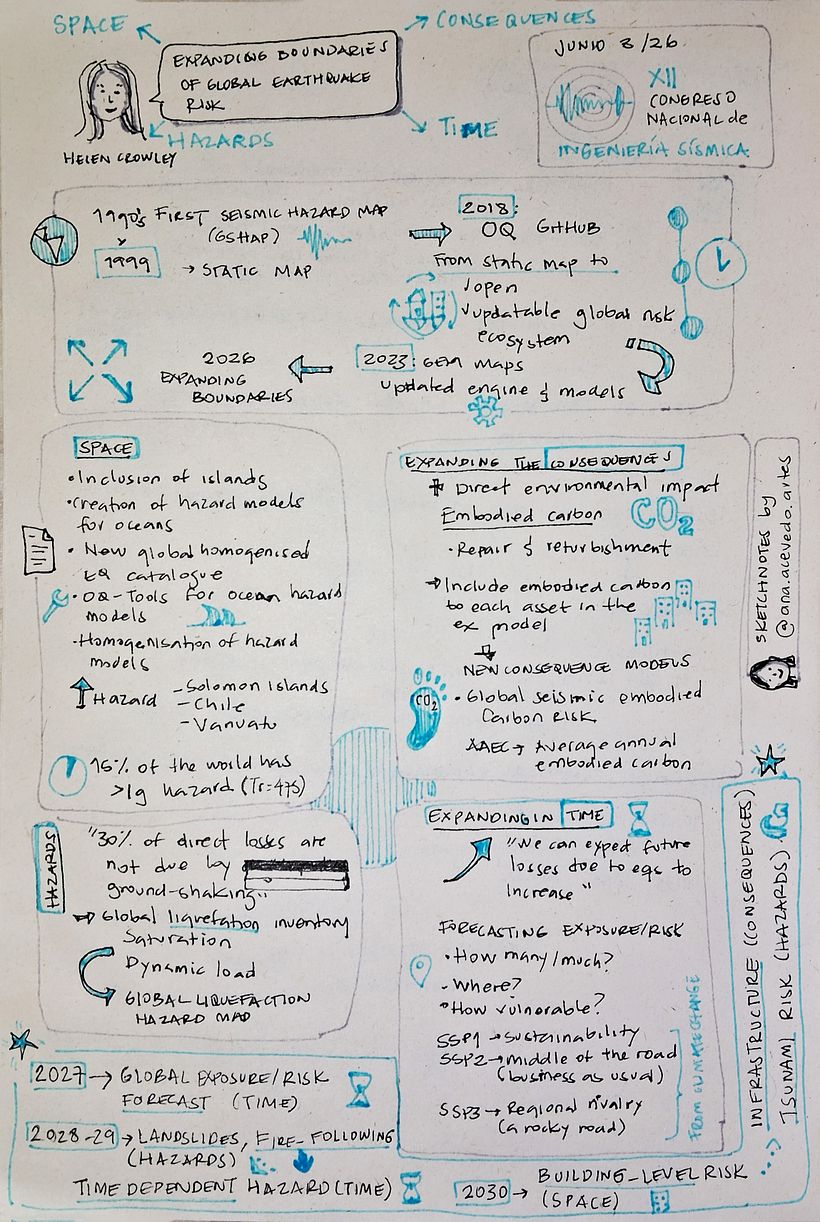 SPACE
CONSEQUENCES
EXPANDING BOUNDARIES
OF GLOBAL EARTHQUAKE
RISK
HAZARDS
TIME
HELEN CROWLEY
JUNIO 3/26
XII
CONGRESO
NACIONAL de
INGENIERÍA SÍSMICA
1990's FIRST SEISMIC HAZARD MAP
(GSHAP)
1999
→ STATIC MAP
2018:
OQ GITHUB
From static map to
✓open
✓updatable global risk
ecosystem
2023: GEM MAPS
updated engine & models
2026
EXPANDING
BOUNDARIES
SPACE
• Inclusion of islands
• creation of hazard models
for oceans
• New global homogenised
EQ catalogue
• OQ-Tools for ocean hazard
models
• Homogenisation of hazard
models
↑ Hazard - Solomon islands
- Chile
- Vanuatu
15% of the world has
>1g hazard (Tr=475)
EXPANDING THE CONSEQUENCES
+ Direct environmental impact
Embodied carbon
CO2
• Repair & refurbishment
→ Include embodied carbon
to each asset in the
ex model
NEW CONSEQUENCE MODELS
CO2
• Global seismic embodied
Carbon RISK
AAEC → Average annual
embodied carbon
SKETCHNOTES by
@ana.acevedo.artes
HAZARDS
"30% of direct losses are
not due by
ground-shaking"
⇒ Global liquefation inventory
Saturation
Dynamic load
GLOBAL LIQUEFACTION
HAZARD MAP
EXPANDING IN TIME
"We can expect future
losses due to eqs to
increase"
FORECASTING EXPOSURE/RISK
• How many/much?
- Where?
• How vulnerable?
SSP1 → Sustainability
SSP2 → middle of the road
(business as usual)
SSP3 → Regional rivalry
(a rocky road)
FROM CLIMATE CHANGE
INFRASTRUCTURE (CONSEQUENCES)
TSUNAMI RISK (HAZARDS)
2027 → GLOBAL EXPOSURE/RISK
FORECAST (TIME)
2028-29 → LANDSLIDES, FIRE-FOLLOWING
(HAZARDS)
TIME DEPENDENT HAZARD (TIME)
2030 → BUILDING-LEVEL RISK
(SPACE)